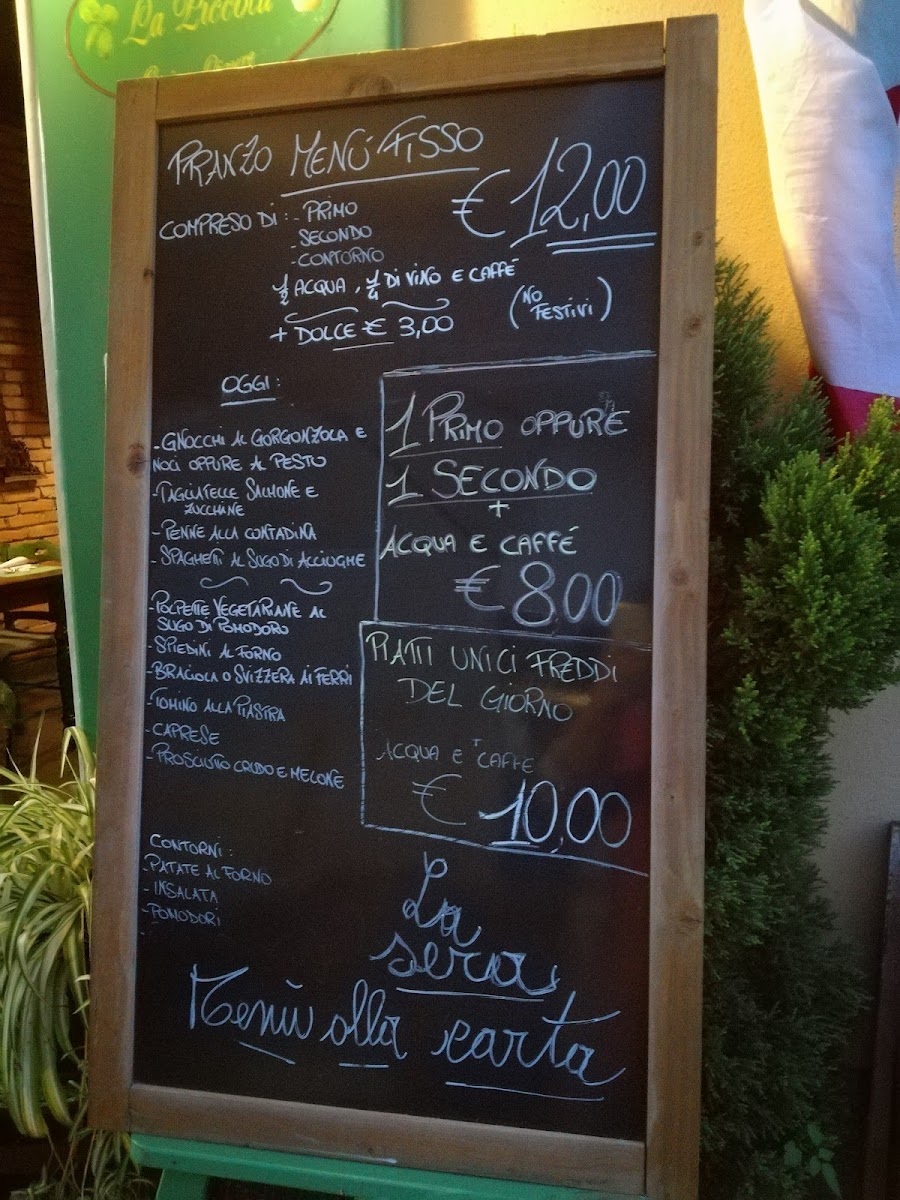 La Piccola
PRANZO MENÚ FISSO
€ 12,00
COMPRESO DI: - PRIMO
- SECONDO
- CONTORNO
1/2 ACQUA, 1/4 DI VINO E CAFFÉ
+ DOLCE € 3,00
(NO FESTIVI)
OGGI:
- GNOCCHI AL GORGONZOLA E
NOCI OPPURE AL PESTO
- TAGLIATELLE SALMONE E
ZUCCHINE
- PENNE ALLA CONTADINA
- SPAGHETTI AL SUGO DI ACCIUGHE
- POLPETTE VEGETARIANE AL
SUGO DI POMODORO
- SPIEDINI AL FORNO
- BRACIOLA O SVIZZERA AI FERRI
- TOMINO ALLA PIASTRA
- CAPRESE
- PROSCIUTTO CRUDO E MELONE
CONTORNI:
- PATATE AL FORNO
- INSALATA
- POMODORI
1 PRIMO OPPURE
1 SECONDO
+
ACQUA E CAFFÉ
€ 8,00
PIATTI UNICI FREDDI
DEL GIORNO
+
ACQUA E CAFFE
€ 10,00
La
sera
Menù alla carta